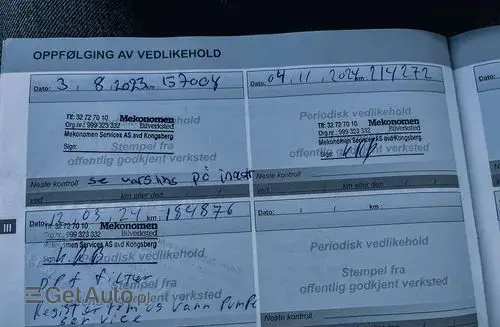 OPPFØLGING AV VEDLIKEHOLD
Dato: 3. 8. 2023 km: 157004
Tlf: 32 72 70 10 Mekonomen
Org.nr.: 999 323 332 Bilverksted
Mekonomen Services AS avd Kongsberg
Sign:
Stempel fra
offentlig godkjent verksted
Neste kontroll se varsling på
ved km eller den
Dato: 04, 11, 2024 km: 214272
Periodisk vedlikehold
Tlf: 32 72 70 10 Mekonomen
Org.nr.: 999 323 332 Bilverksted
Mekonomen Services AS avd Kongsberg
Sign:
Stempel fra
offentlig godkjent verksted
Neste kontroll
ved km eller den
III
12, 03, 24 km: 184876
Tlf: 32 72 70 10 Mekonomen
Org.nr.: 999 323 332 Bilverksted
Mekonomen Services AS avd Kongsberg
Sign:
Periodisk vedlikehold
Stempel fra
offentlig godkjent verksted
DPF filter
Register rem og vann pumpe
service
Dato: / / km:
Periodisk vedlikehold
Stempel fra
offentlig godkjent verksted
GetAuto.pl